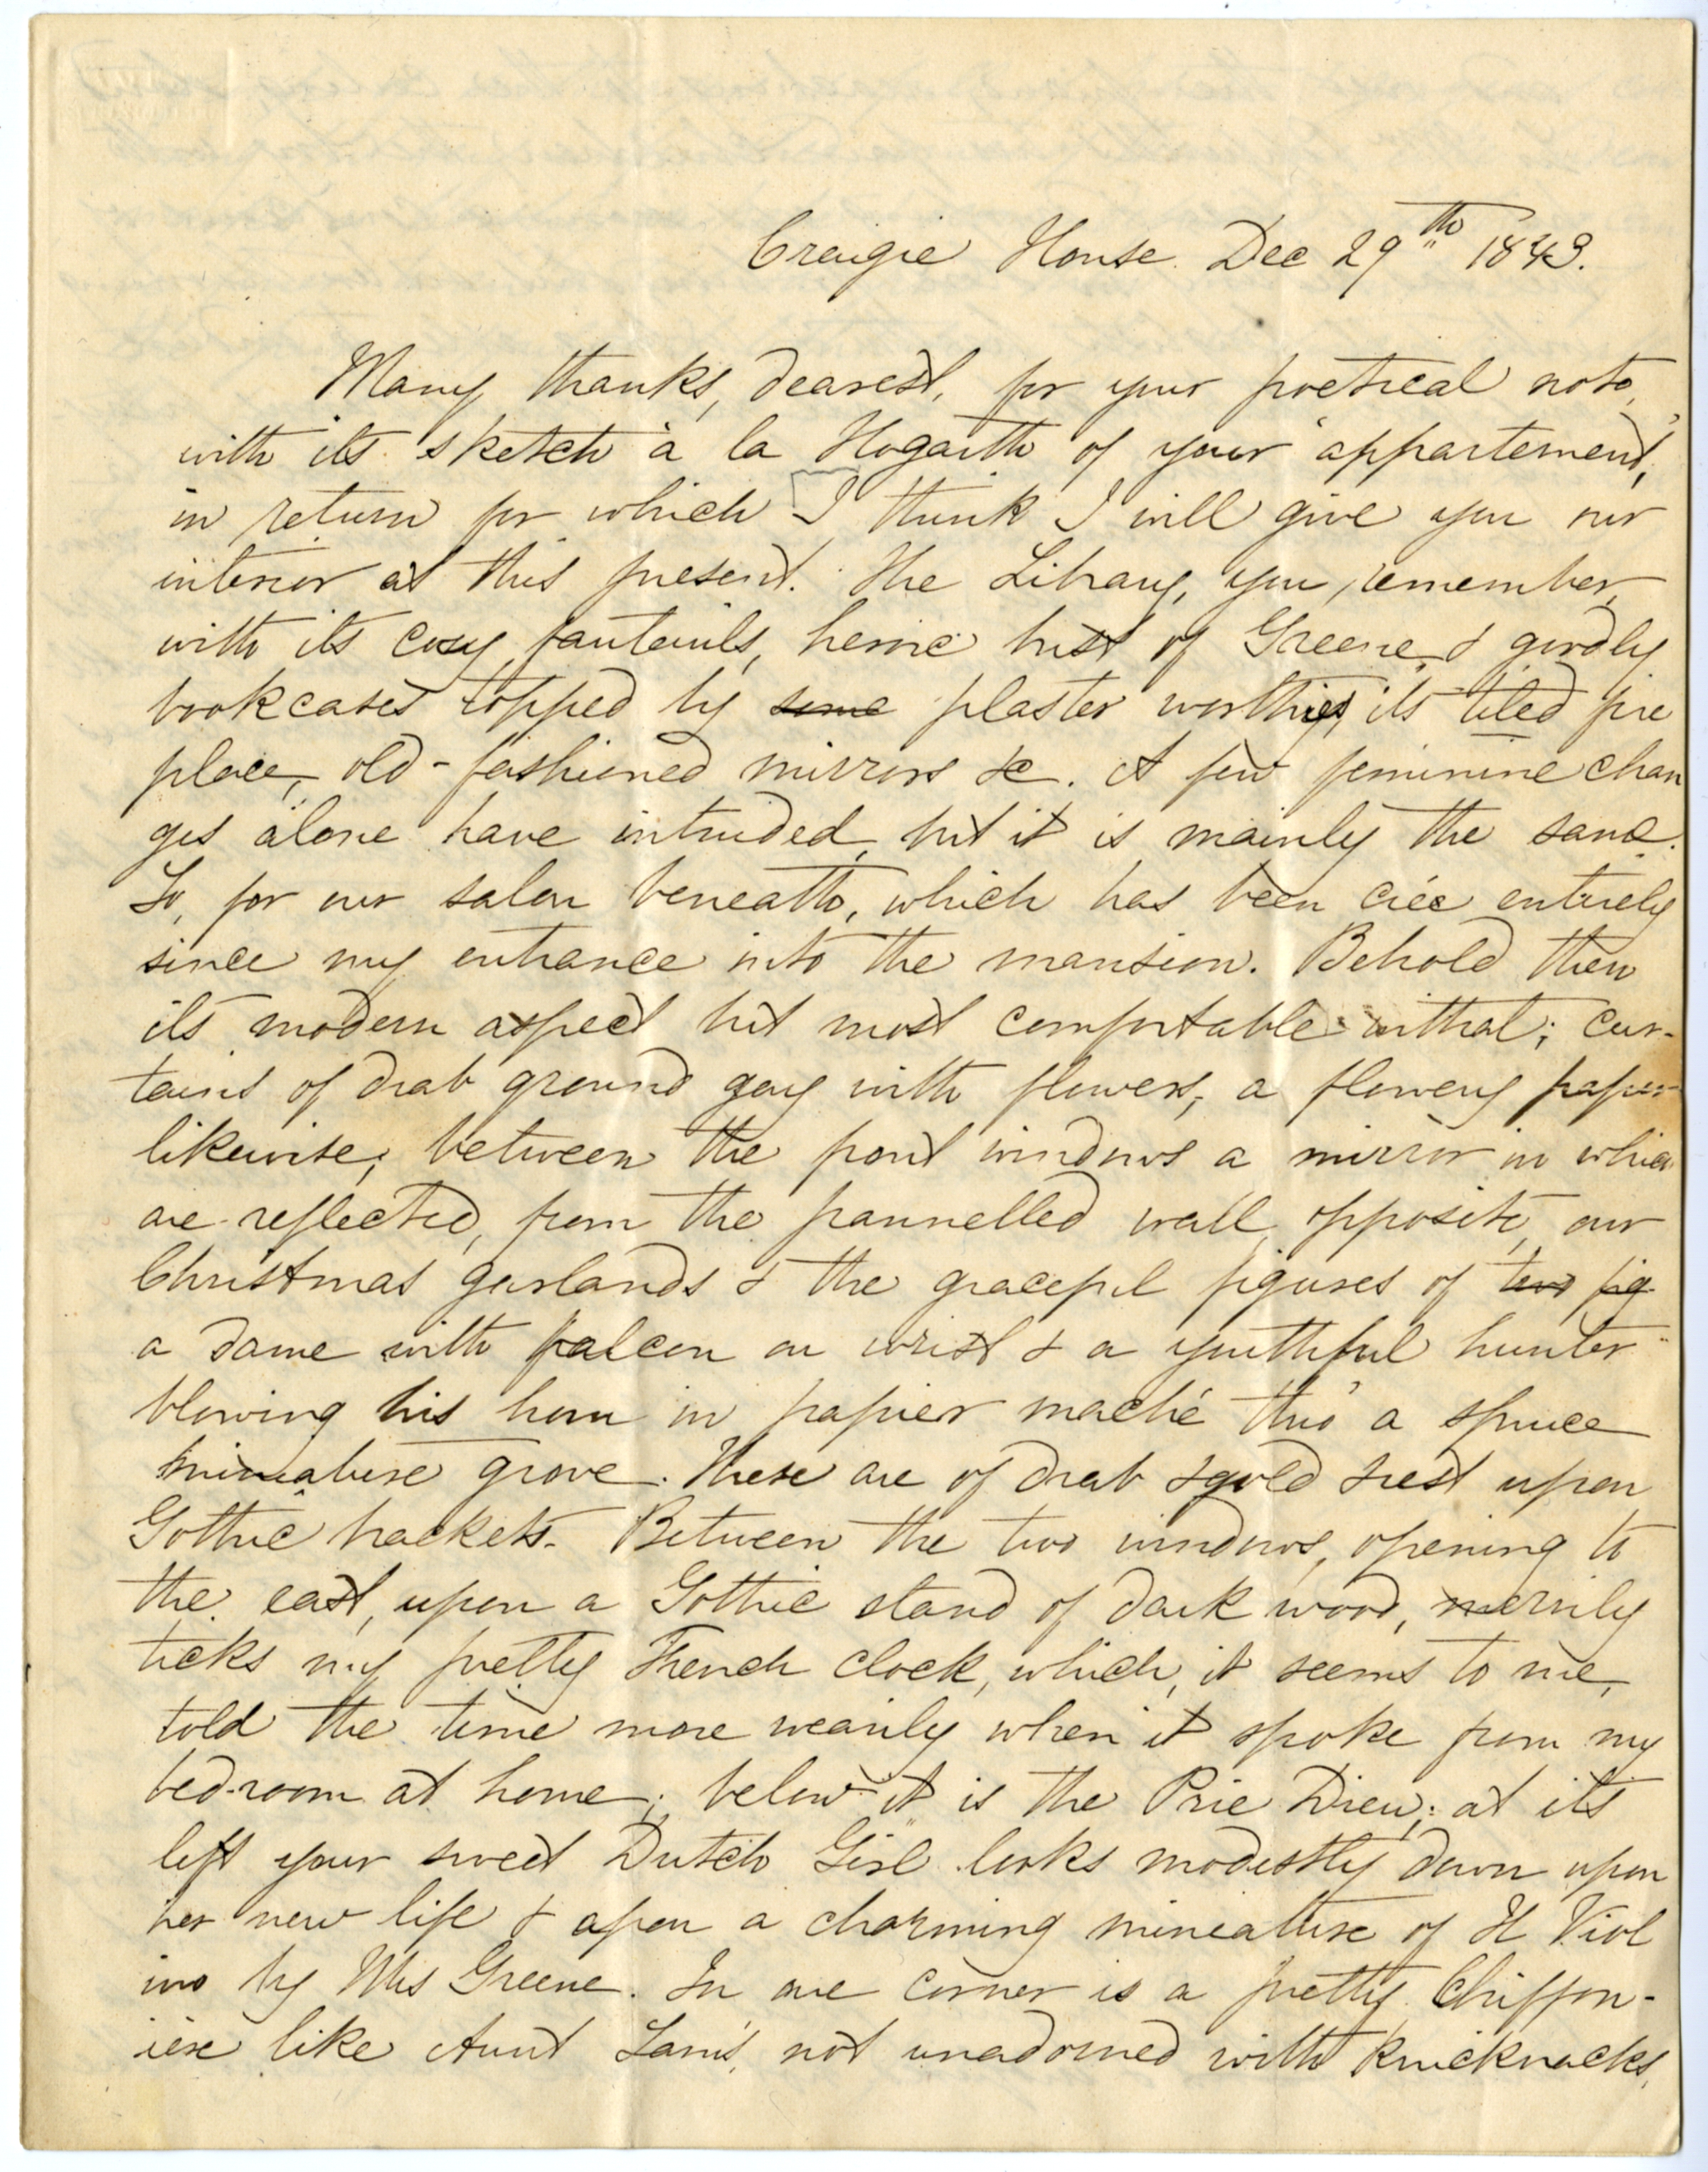 Craigie House. Dec 29th 1843.
Many thanks, dearest, for your poetical note,
with its sketch à la Hogarth of your "appartement,"
in return for which I think I will give you our
interior at this present. The Library, you remember,
with its cosy fauteuils, heroic bust of Greene, & goodly
bookcases topped by some plaster worthies, its tiled fire
place, old-fashioned mirrors &c. A few feminine chan
ges alone have intruded, but it is mainly the same.
So, for our salon beneath, which has been créé entirely
since my entrance into the mansion. Behold then
its modern aspect but most comfortable withal; cur-
tains of drab ground gay with flowers, a flowery paper
likewise; between the front windows a mirror in which
are reflected, from the pannelled wall opposite, our
Christmas garlands & the graceful figures of two fig
a dame with falcon on wrist & a youthful hunter
blowing his horn in papier maché thro' a spruce
miniature grove. These are of drab & gold & rest upon
Gothic brackets. Between the two windows, opening to
the east, upon a Gothic stand of dark wood, merrily
ticks my pretty French clock, which, it seems to me,
told the time more wearily when it spoke from my
bed-room at home; below it is the Prie Dieu; at its
left your sweet Dutch Girl looks modestly down upon
her new life & upon a charming mineature of Il Viol
ino by Mrs Greene. In one corner is a pretty Chiffon-
iere like Aunt Sam's, not unadorned with knicknacks,